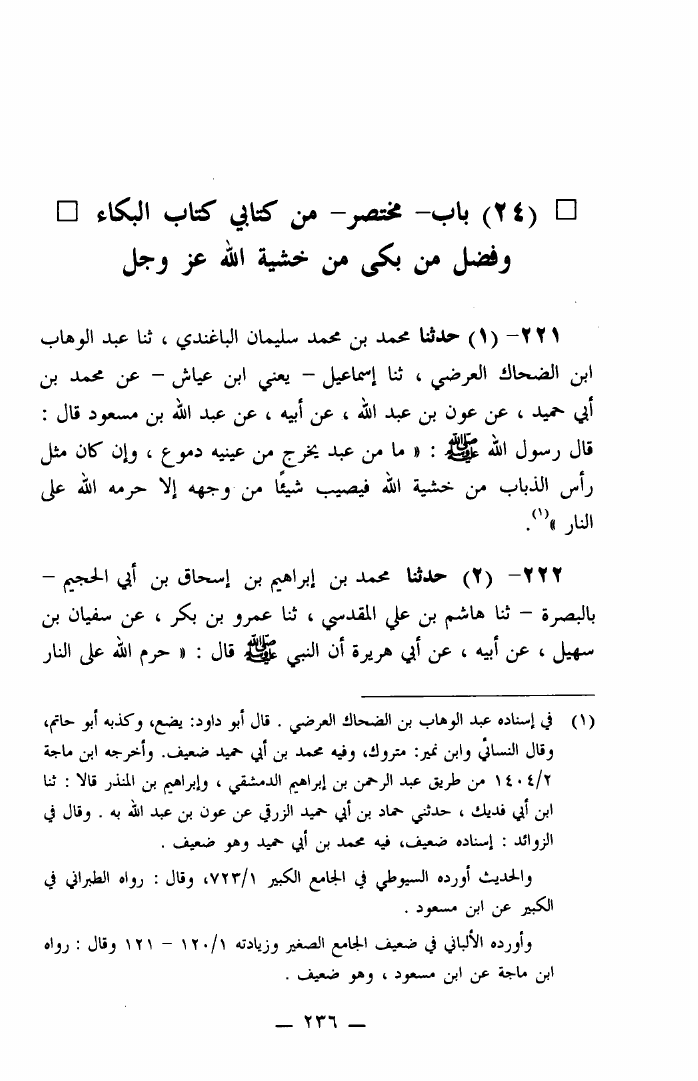 □ (٢٤) باب- مختصر- من كتابي كتاب البكاء □
وفضل من بكى من خشية الله عز وجل
٢٢١- (١) حدثنا محمد بن محمد سليمان الباغندي ، ثنا عبد الوهاب
ابن الضحاك العرضي ، ثنا إسماعيل – يعني ابن عياش – عن محمد بن
أبي حميد ، عن عون بن عبد الله ، عن أبيه ، عن عبد الله بن مسعود قال :
قال رسول الله ﷺ : « ما من عبد يخرج من عينيه دموع ، وإن كان مثل
رأس الذباب من خشية الله فيصيب شيئًا من وجهه إلا حرمه الله على
النار »(١).
٢٢٢- (٢) حدثنا محمد بن إبراهيم بن إسحاق بن أبي الحجيم –
بالبصرة – ثنا هاشم بن علي المقدسي ، ثنا عمرو بن بكر ، عن سفيان بن
سهيل ، عن أبيه ، عن أبي هريرة أن النبي ﷺ قال : « حرم الله على النار
(١) في إسناده عبد الوهاب بن الضحاك العرضي . قال أبو داود: يضع، وكذبه أبو حاتم،
وقال النسائي وابن نمير: متروك، وفيه محمد بن أبي حميد ضعيف. وأخرجه ابن ماجة
١٤٠٤/٢ من طريق عبد الرحمن بن إبراهيم الدمشقي ، وإبراهيم بن المنذر قالا : ثنا
ابن أبي فديك ، حدثني حماد بن أبي حميد الزرقي عن عون بن عبد الله به . وقال في
الزوائد : إسناده ضعيف، فيه محمد بن أبي حميد وهو ضعيف .
والحديث أورده السيوطي في الجامع الكبير ٧٢٣/١، وقال : رواه الطبراني في
الكبير عن ابن مسعود .
وأورده الألباني في ضعيف الجامع الصغير وزيادته ١٢٠/١ – ١٢١ وقال : رواه
ابن ماجة عن ابن مسعود ، وهو ضعيف .
– ٢٣٦ –